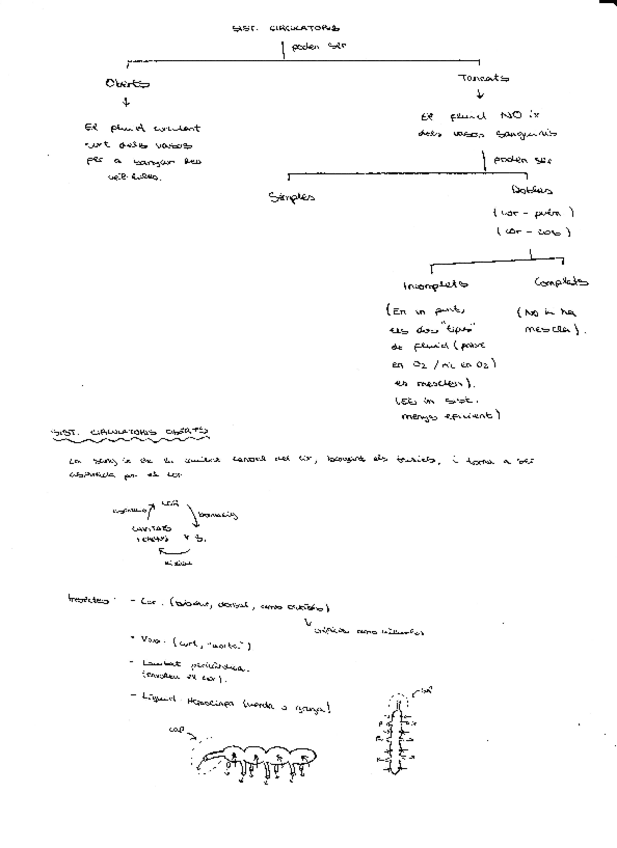 SIST. CIRCULATORIS
poden ser
Oberts
Tancats
El fluid circulant
surt dels vasos
per a banyar les
cèl·lules.
El fluid NO ix
dels vasos sanguinis
poden ser
Simples
Dobles
(cor - pulm)
(cor - cos)
Incomplets
Complets
(En un punt,
els dos "tipus"
de fluid (pobre
en O2 / ric en O2)
es mesclen).
(És un sist.
menys eficient)
(No hi ha
mescla).
SIST. CIRCULATORIS OBERTS
La sang ix de la cavitat central del cor, banyant els teixits, i torna a ser
absorbida per el cor
COR
CAVITATS
Insectes: - Cor. (tubular, dorsal, amb ostíols)
- Vaso. (curt, "aorta")
pericàrdica.
(envolten el cor).
- Líquid Hemolimfa (verda o groga)
CAP